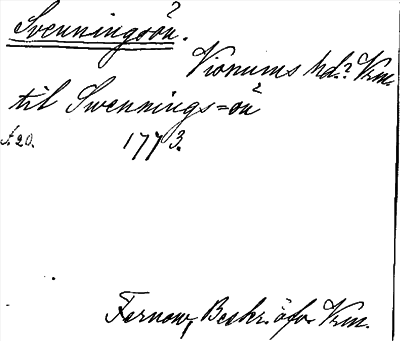 Svenningsön.
Visnums hd.? Vrm.
til Swennings=ön
s. 20. 1773.
Fernow, Beskr. öfver Vrm.